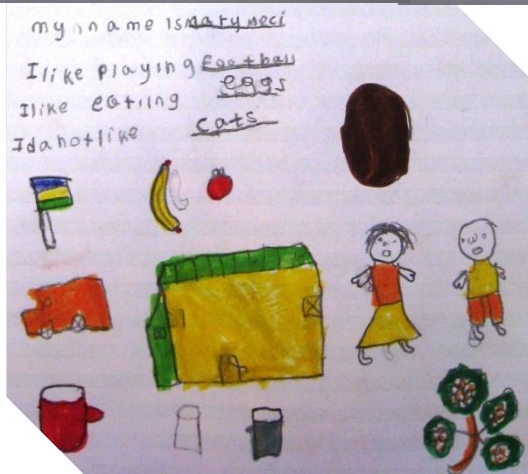 my name is marymeci
I like playing football
I like eating eggs
I da not like cats